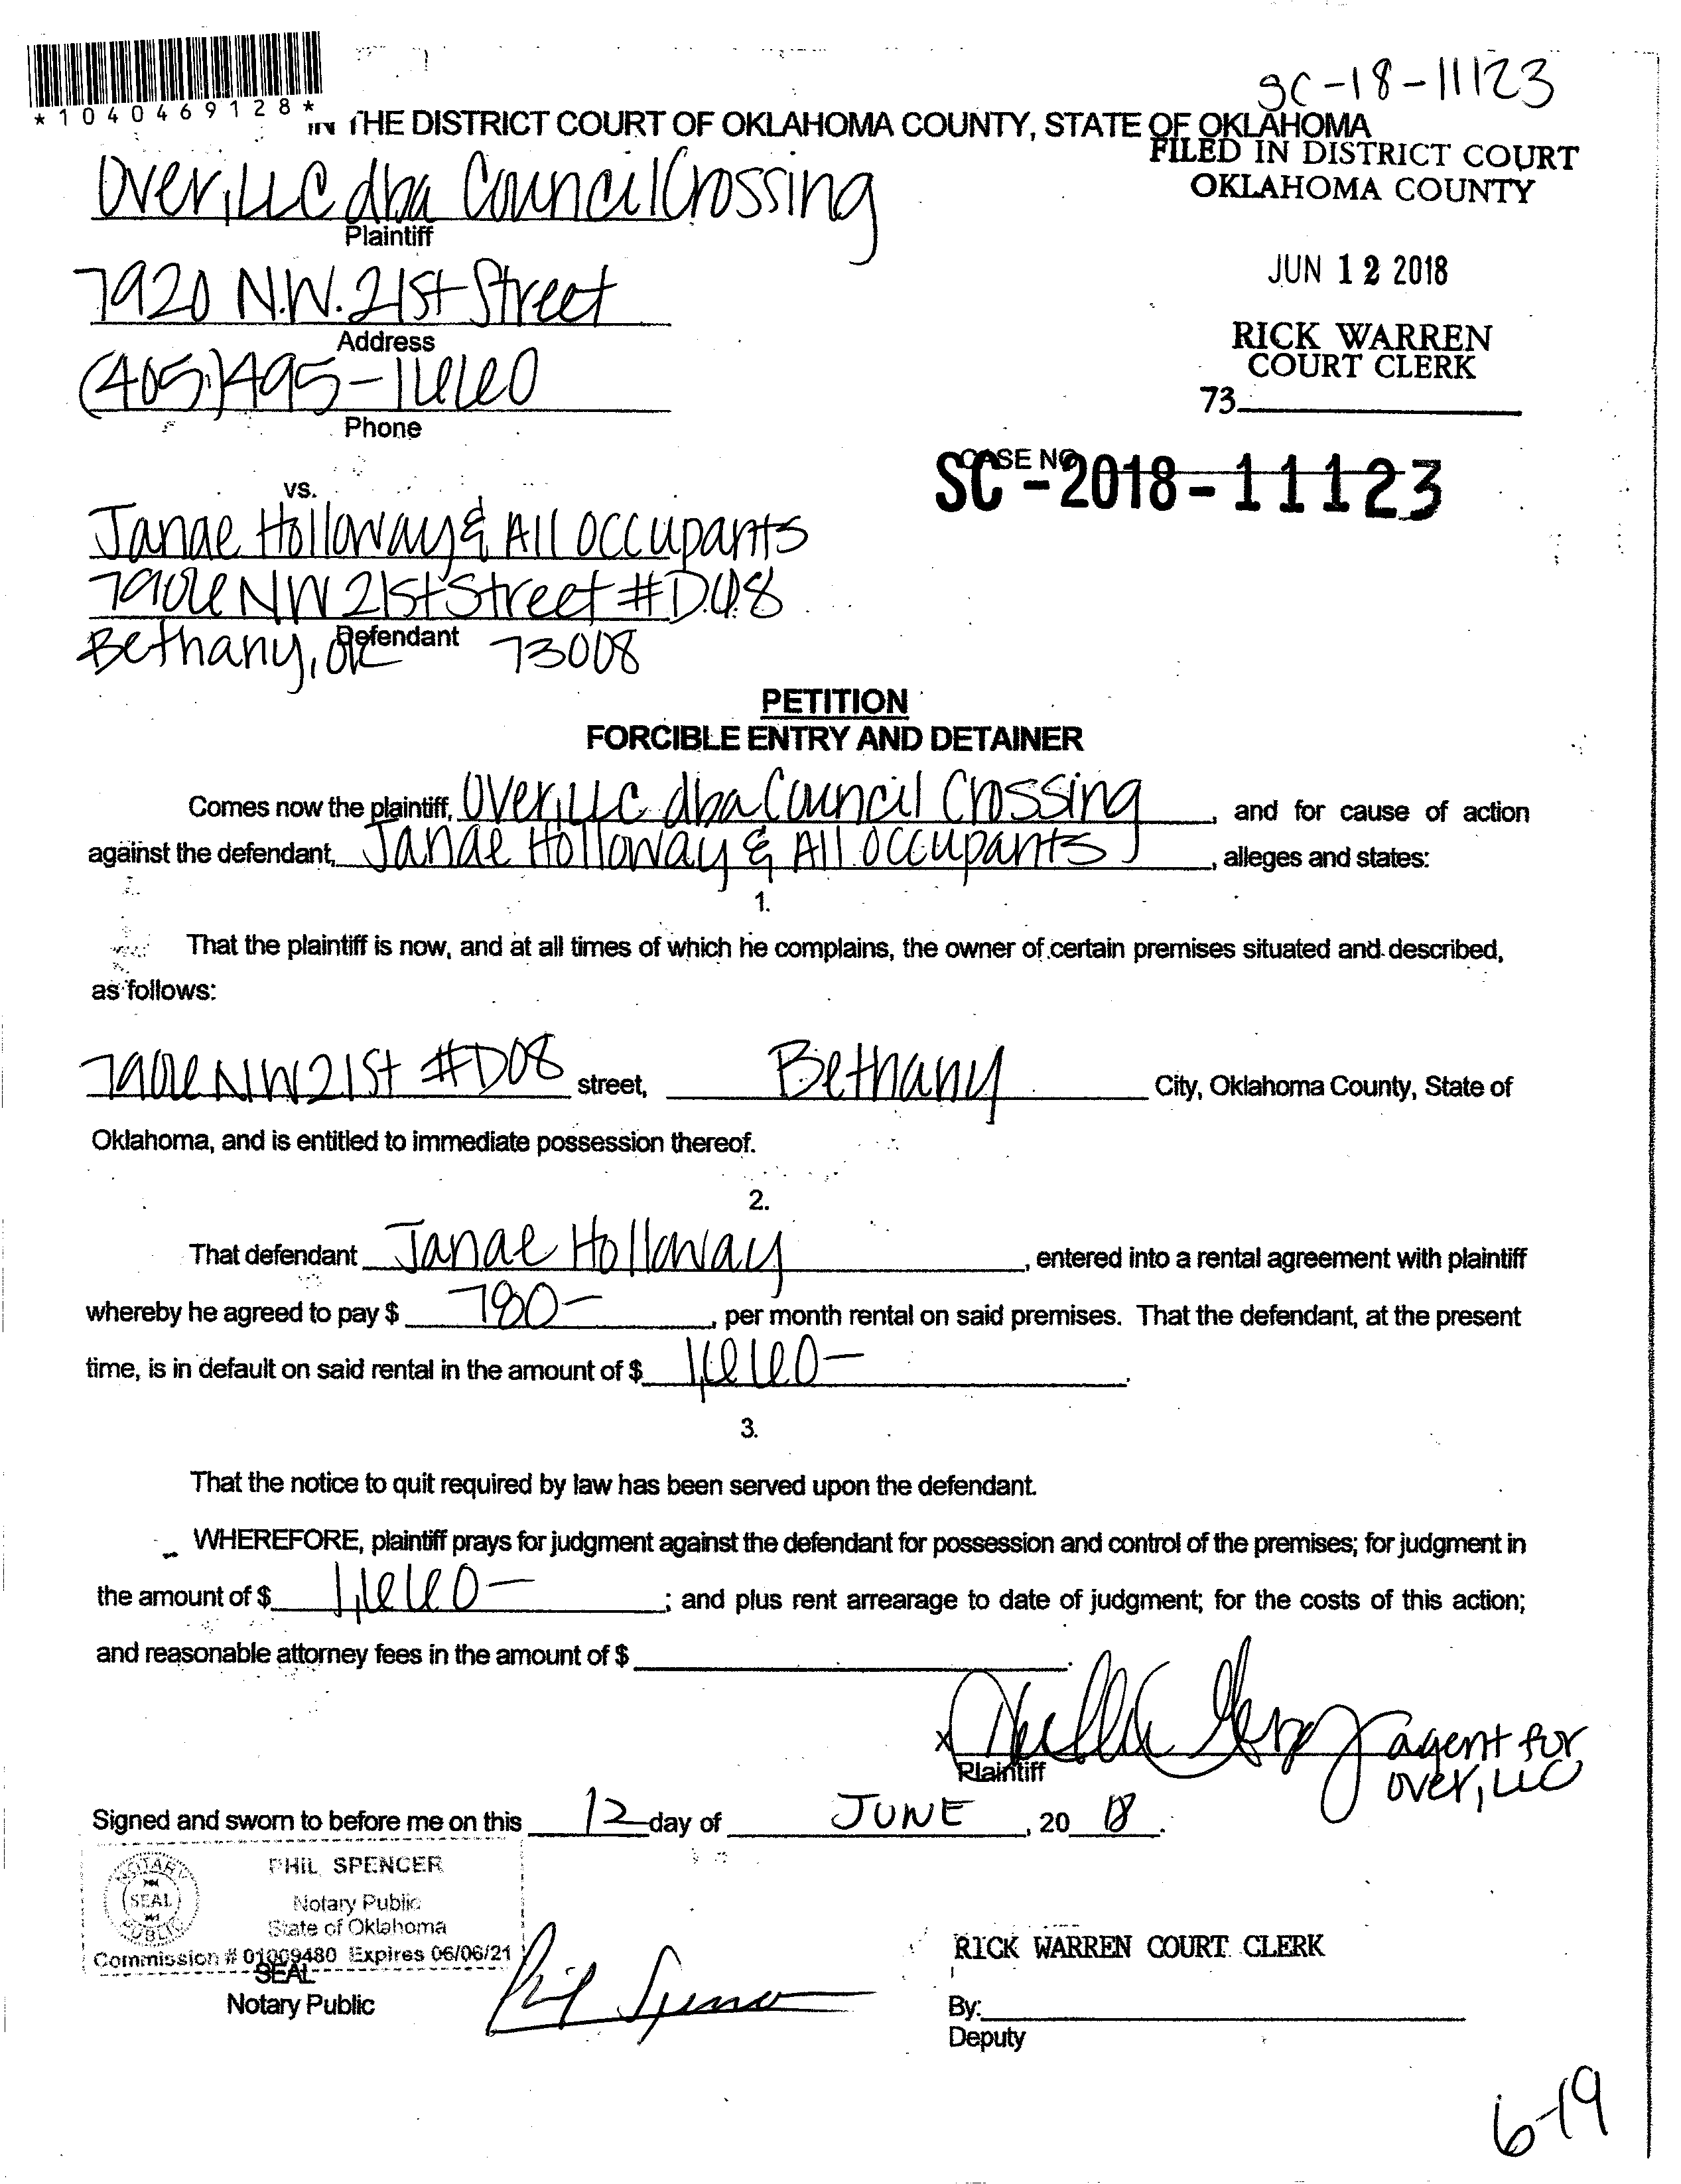 SC-18-11123
*1040469128*
IN THE DISTRICT COURT OF OKLAHOMA COUNTY, STATE OF OKLAHOMA
FILED IN DISTRICT COURT
OKLAHOMA COUNTY
Over, LLC dba Council Crossing
Plaintiff
JUN 12 2018
7920 N.W. 21st Street
Address
RICK WARREN
COURT CLERK
(405) 495-1660
73
Phone
CASE NO
SC-2018-11123
vs.
Janae Holloway & All Occupants
7906 NW 21st Street #D08
Defendant
Bethany, OK 73008
PETITION
FORCIBLE ENTRY AND DETAINER
Comes now the plaintiff, Over, LLC dba Council Crossing, and for cause of action
against the defendant, Janae Holloway & All Occupants, alleges and states:
1.
That the plaintiff is now, and at all times of which he complains, the owner of certain premises situated and described,
as follows:
7906 NW 21st #D08 street, Bethany City, Oklahoma County, State of
Oklahoma, and is entitled to immediate possession thereof.
2.
That defendant Janae Holloway, entered into a rental agreement with plaintiff
whereby he agreed to pay $ 780-, per month rental on said premises. That the defendant, at the present
time, is in default on said rental in the amount of $ 1,660-.
3.
That the notice to quit required by law has been served upon the defendant.
WHEREFORE, plaintiff prays for judgment against the defendant for possession and control of the premises; for judgment in
the amount of $ 1,660-; and plus rent arrearage to date of judgment; for the costs of this action;
and reasonable attorney fees in the amount of $ .
x agent for
Over, LLC
Plaintiff
Signed and sworn to before me on this 12 day of JUNE, 20 18.
PHIL SPENCER
Notary Public
State of Oklahoma
Commission # 01009480 Expires 06/06/21
NOTARY SEAL PUBLIC
SEAL
Notary Public
Phil Spencer
RICK WARREN COURT CLERK
By:
Deputy
6-19